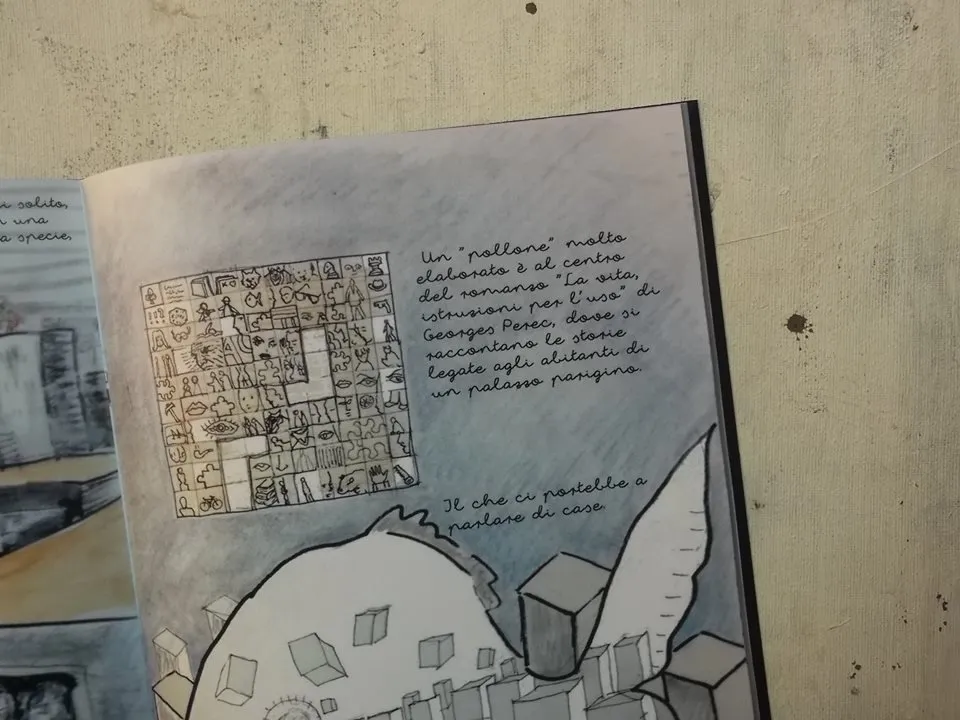 i solito,
una
a specie,
Un "pollone" molto
elaborato è al centro
del romanzo "La vita,
istruzioni per l'uso" di
Georges Perec, dove si
raccontano le storie
legate agli abitanti di
un palazzo parigino.
Il che ci portebbe a
parlare di case.